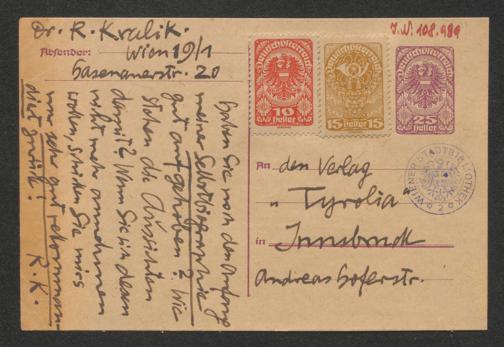 Dr. R. Kralik.
Absender: Wien 19/1
Hasenauerstr. 20
J.N. 108.989
Deutschösterreich
10
heller
Deutschösterreich
15 heller 15
Deutschösterreich
25
heller
WIENER STADTBIBLIOTHEK
An den Verlag
„Tyrolia"
in Innsbruck
Andreas Hoferstr.
Haben Sie noch den Anfang
meiner Selbstbiographie
gut aufgehoben? Wie
stehen die Aussichten
damit? Wenn Sie ihn
nicht mehr annehmen
wollen, schicken Sie mirs
nur sehr gut rekomman-
diert zurück!
R. K.